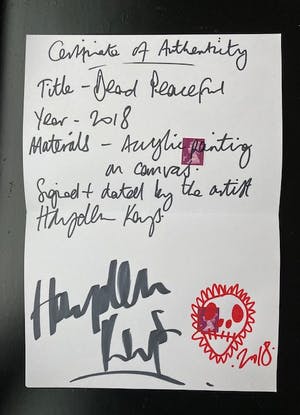 Certificate of Authenticity
Title - Dead Peaceful
Year - 2018
Materials - Acrylic painting
on canvas.
Signed + dated by the artist
Hayden Kays
Hayden
Kays
2018.